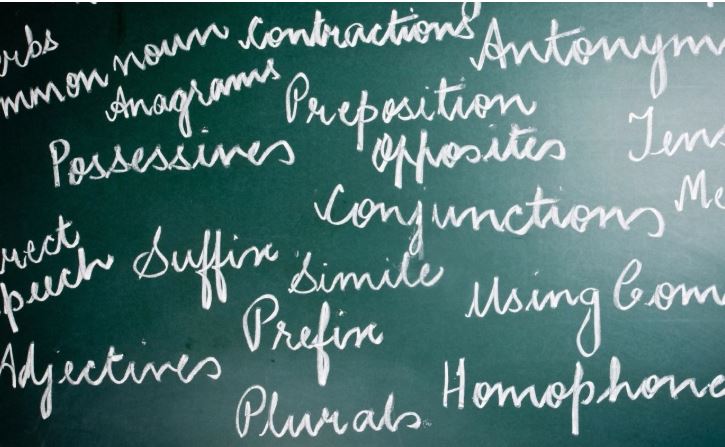 erbs
Contractions
Antonym
mmon noun
Anagrams
Preposition
Possessives
Opposites
Tens
Conjunctions
Me
rect
peech
Suffix
Simile
Using Com
Prefix
Adjectives
Homophone
Plurals